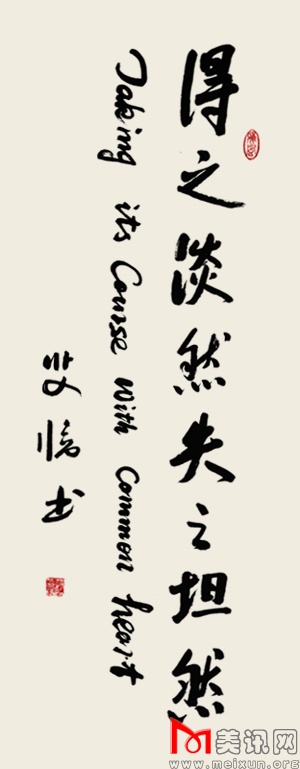 得之淡然失之坦然
Taking its Course With Common heart
美讯网
www.meixun.org